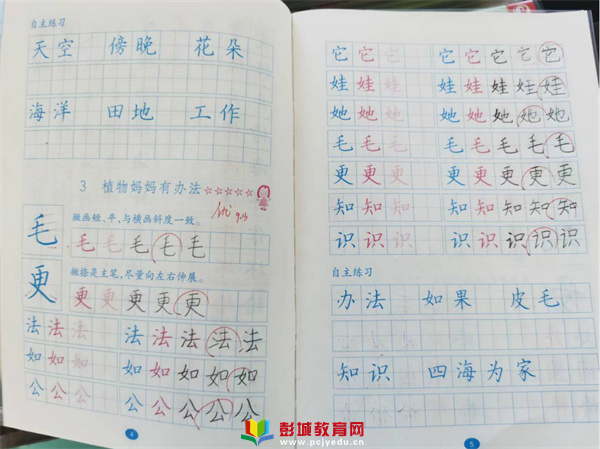 自主练习
天空 傍晚 花朵
海洋 田地 工作
3 植物妈妈有办法
毛 撇画短、平,与横画斜度一致。
毛毛毛毛毛
更 撇捺是主笔,尽量向左右伸展。
更更更更更
法法法 法法法法法
如如如 如如如如如
公公公 公公公公公
4
它它它 它它它它它
娃娃娃 娃娃娃娃娃
她她她 她她她她她
毛毛毛 毛毛毛毛毛
更更更 更更更更更
知知知 知知知知知
识识识 识识识识识
自主练习
办法 如果 皮毛
知识 四海为家
5
彭城教育网
www.pcjyedu.cn